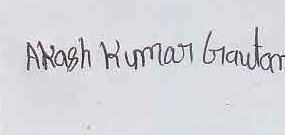 Akash Kumar Gautam